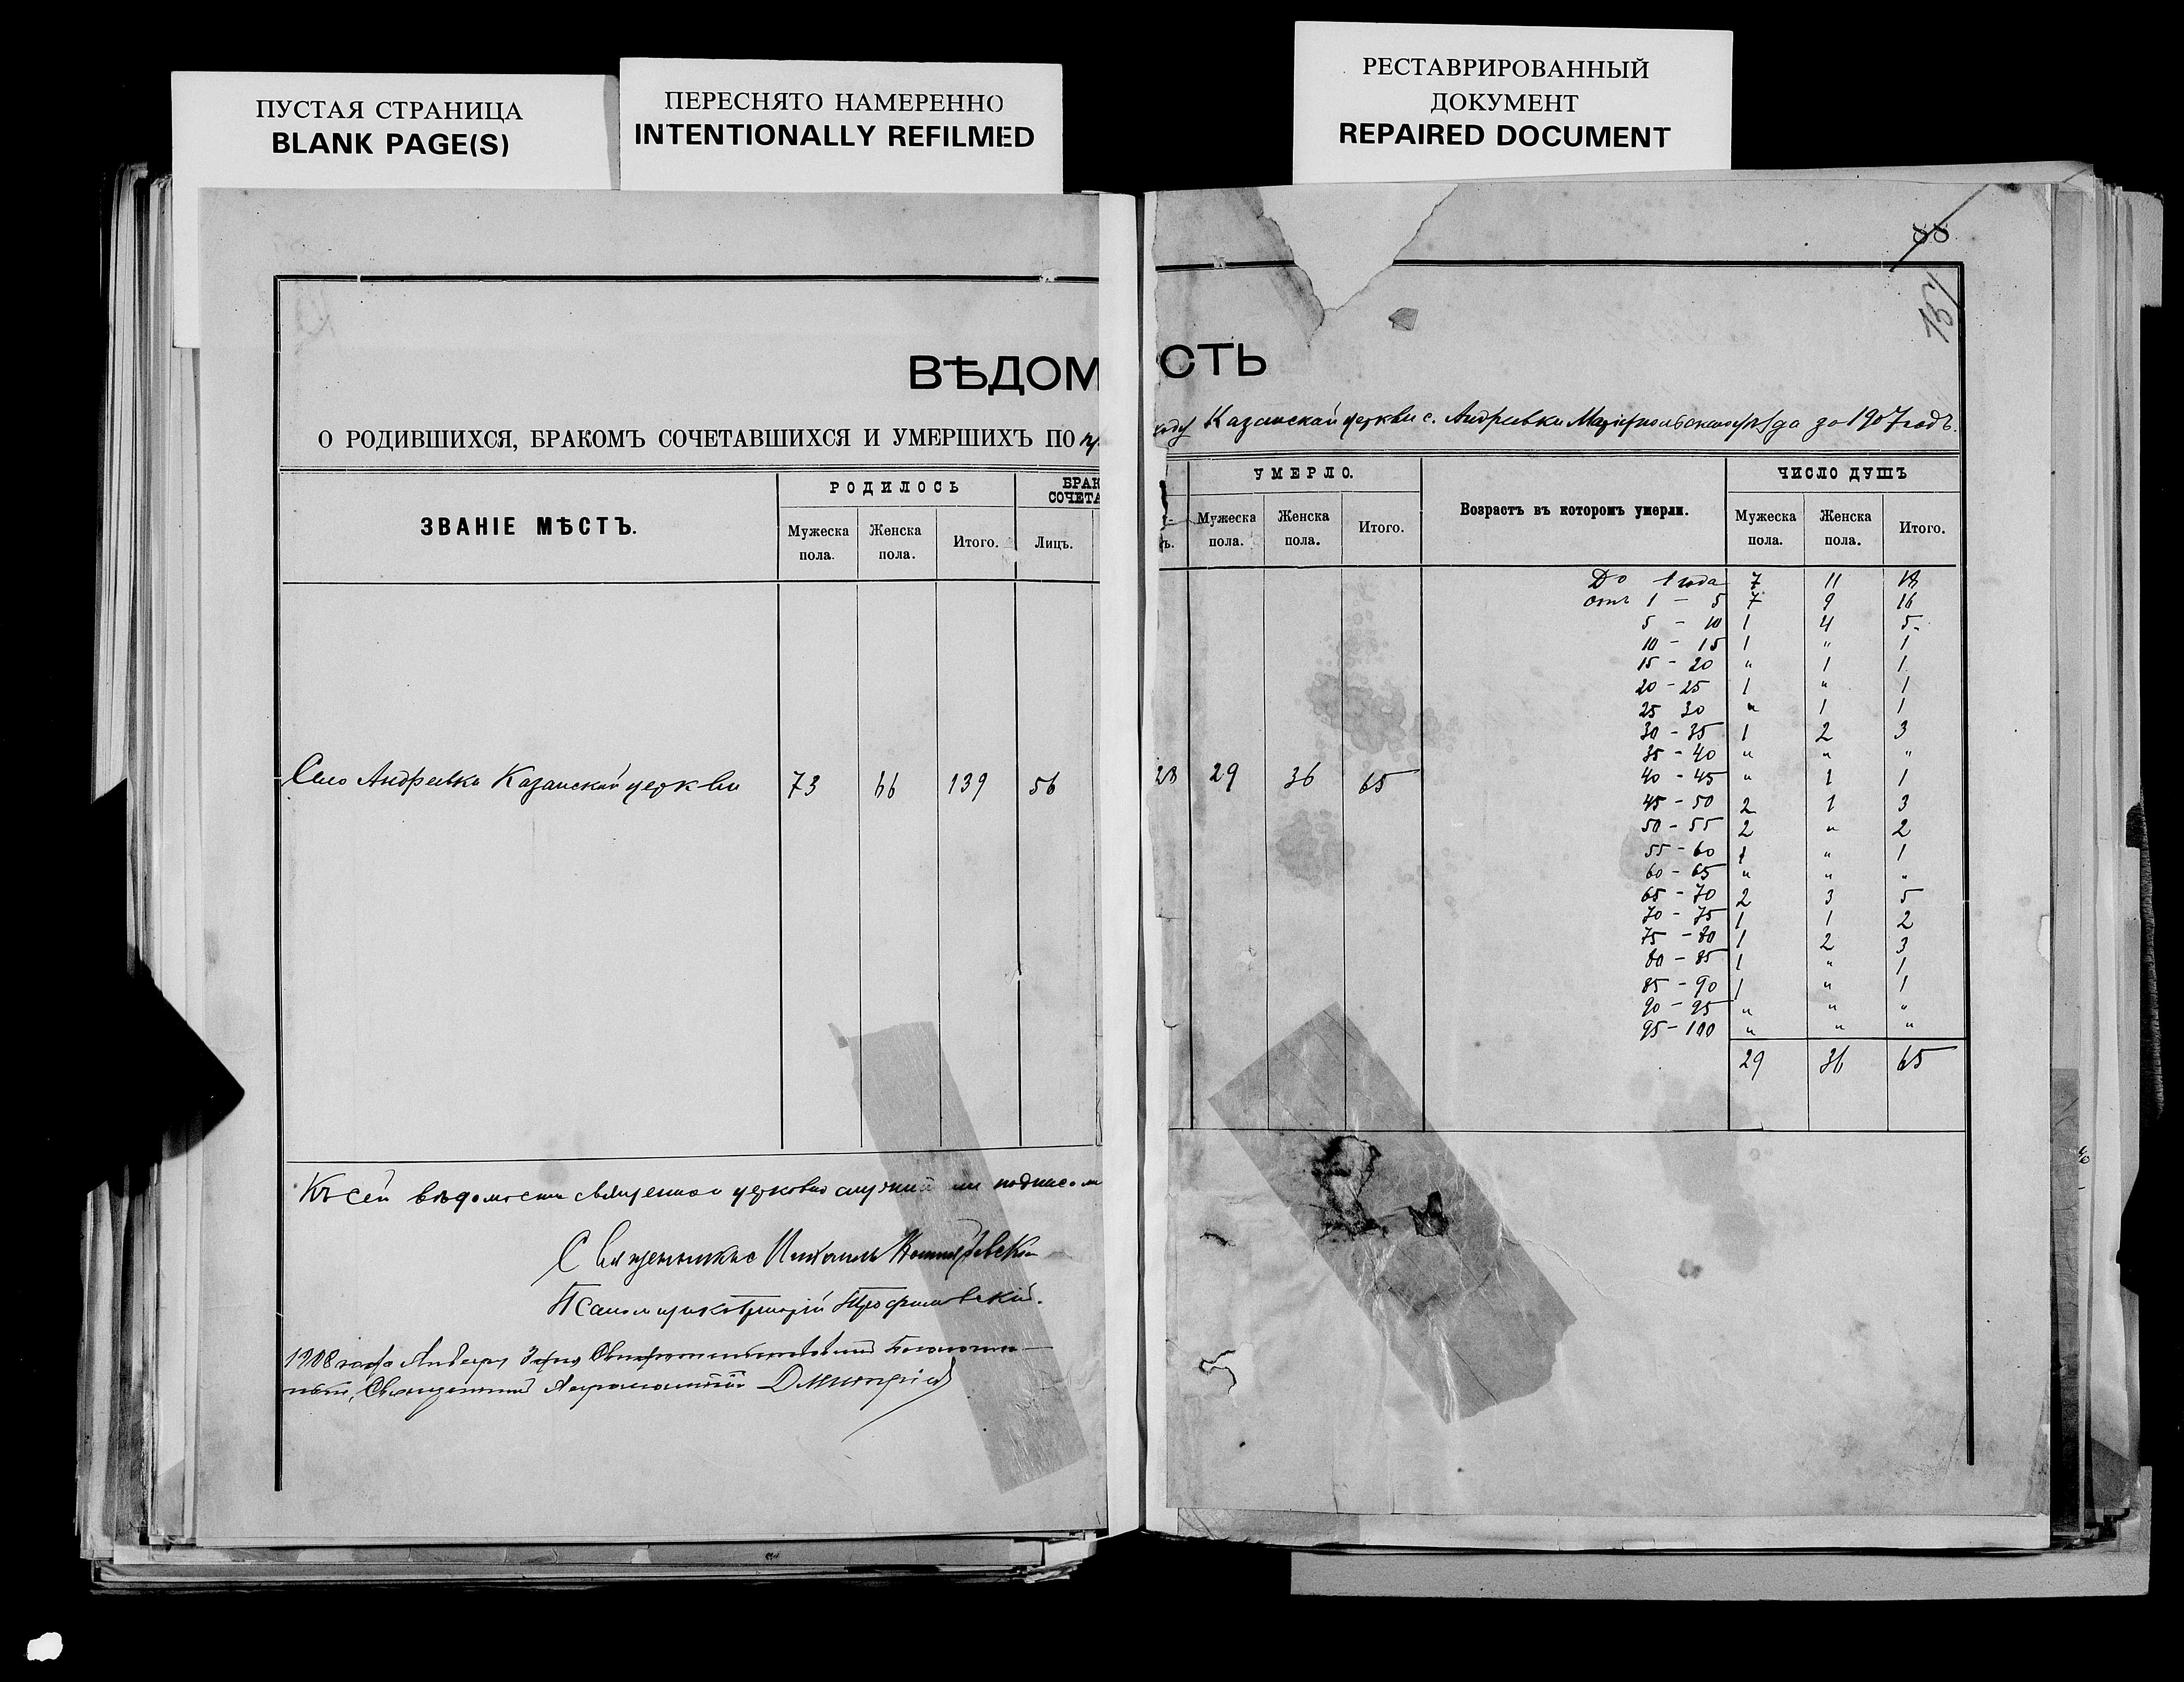 ПУСТАЯ СТРАНИЦА
BLANK PAGE(S)
ПЕРЕСНЯТО НАМЕРЕННО
INTENTIONALLY REFILMED
РЕСТАВРИРОВАННЫЙ
ДОКУМЕНТ
REPAIRED DOCUMENT
88
ВѢДОМ СТЬ
О РОДИВШИХСЯ, БРАКОМЪ СОЧЕТАВШИХСЯ И УМЕРШИХЪ ПО при ходу Казанской церкви с. Андреевки Маріупольскаго уѣзда за 1907 годъ.
ЗВАНІЕ МѢСТЪ.
РОДИЛОСЬ
Мужеска пола.
Женска пола.
Итого.
БРАК
СОЧЕТА
Лицъ.
УМЕРЛО.
Мужеска пола.
Женска пола.
Итого.
Возрастъ въ которомъ умерли.
ЧИСЛО ДУШЪ
Мужеска пола.
Женска пола.
Итого.
Село Андреевка Казанской церкви 73 66 139 56 28 29 36 65
До 1 года 7 11 18
отъ 1 - 5 7 9 16
5 - 10 1 4 5
10 - 15 1 " 1
15 - 20 " 1 1
20 - 25 1 " 1
25 30 " 1 1
30 - 35 1 2 3
35 - 40 " " "
40 - 45 " 1 1
45 - 50 2 1 3
50 - 55 2 " 2
55 - 60 1 " 1
60 - 65 " " "
65 - 70 2 3 5
70 - 75 1 1 2
75 - 80 1 2 3
80 - 85 1 " 1
85 - 90 1 " 1
90 - 95 " " "
95 - 100 " " "
29 36 65
Къ сей вѣдомости священно и церковно служители подписом
Священникъ
Псаломщикъ Григорій Трофимовскій.
1908 года Января дня Благочин-
ный, Священникъ Димитрій